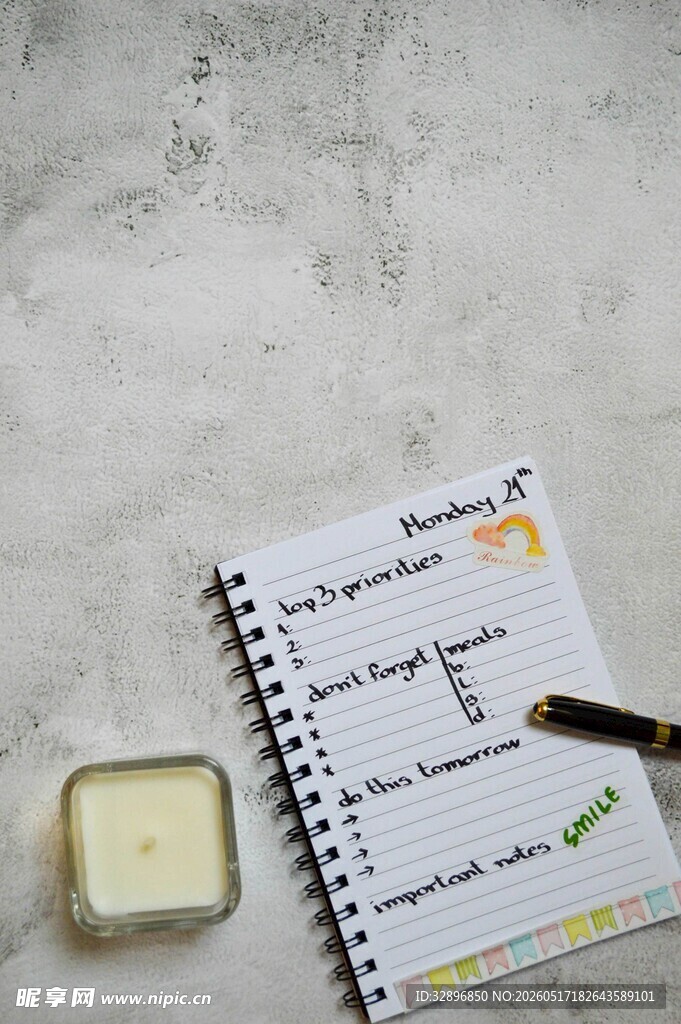 Monday 21th
Rainbow
top 3 priorities
1:
2:
3:
don't forget
*
*
*
*
meals
b:
L:
s:
d:
do this tomorrow
→
→
→
→
SMILE
important notes
昵享网 www.nipic.cn
ID:32896850 NO:20260517182643589101